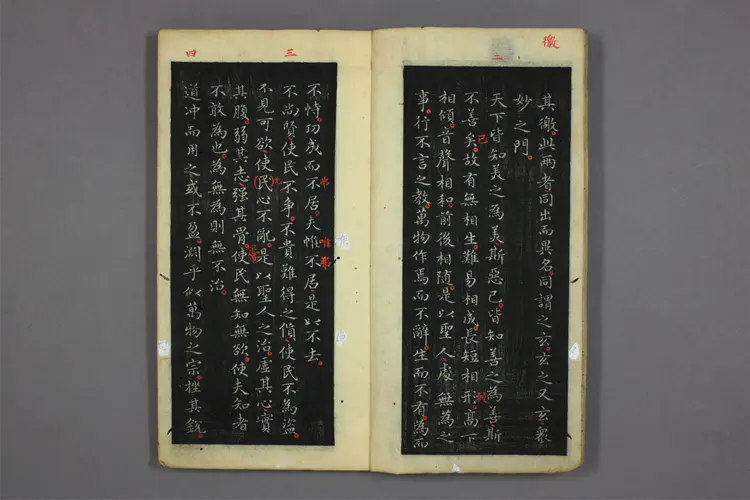 徼
二
其徼此兩者同出而異名同謂之玄玄之又玄衆
妙之門
天下皆知美之為美斯惡已皆知善之為善斯
不善矣故有無相生難易相成長短相形高下
已
相傾音聲相和前後相隨是以聖人處無為之
事行不言之教萬物作焉而不辭生而不有為而
三
四
不恃功成而不居夫惟不居是以不去
弗
唯弗
不尚賢使民不爭不貴難得之貨使民不為盜
不見可欲使民心不亂是以聖人之治虛其心實
其腹弱其志强其骨使民無知無欲使夫知者
不敢為也為無為則無不治
道冲而用之或不盈淵乎似萬物之宗挫其銳